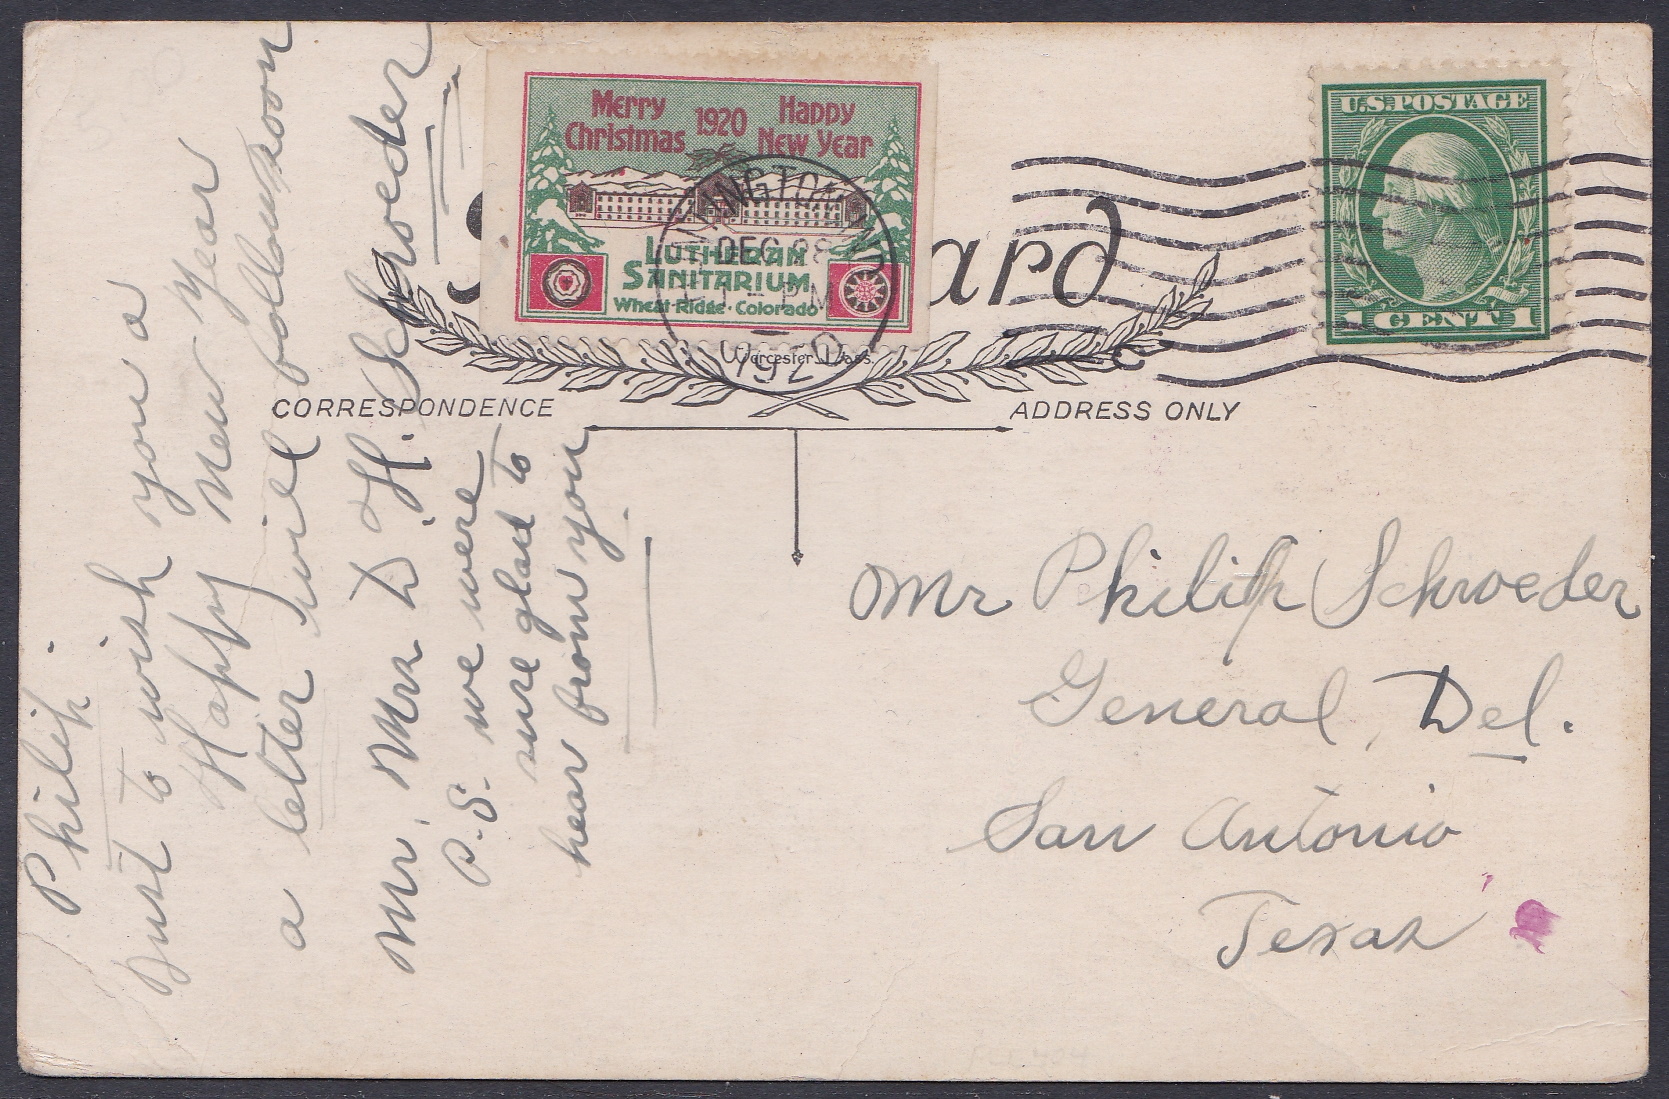 Merry Christmas
1920
Happy New Year
LUTHERAN
SANITARIUM
Wheat Ridge · Colorado
DEC 28
PM
1920
U.S. POSTAGE
1 CENT 1
ard
Worcester, Mass.
CORRESPONDENCE
ADDRESS ONLY
Philip
Just to wish you a
Happy New Year
a letter will follow soon
Mr. Mrs D. H. Schroeder
P.S. we were
sure glad to
hear from you
Mr Philip Schroeder
General Del.
San Antonio
Texas